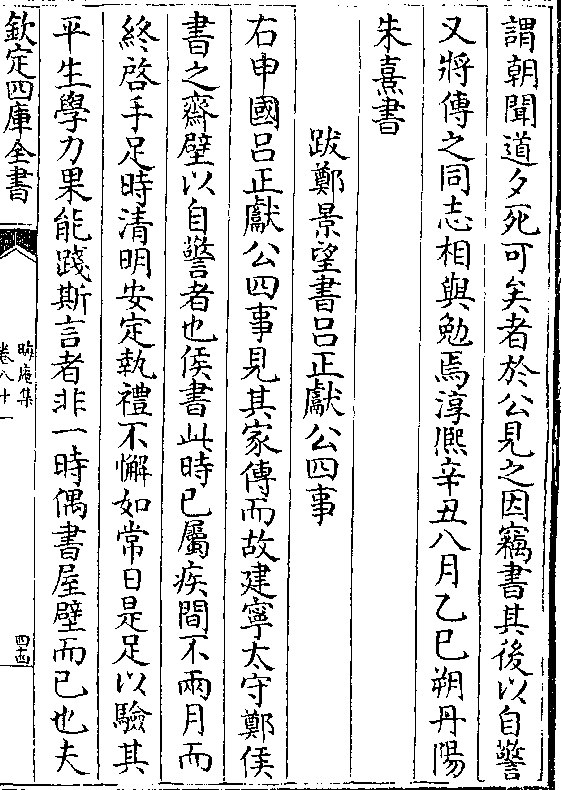 謂朝聞道夕死可矣者於公見之因竊書其後以自警
又將傳之同志相與勉焉淳熙辛丑八月乙巳朔丹陽
朱熹書
跋鄭景望書呂正獻公四事
右申國呂正獻公四事見其家傳而故建寧太守鄭侯
書之齋壁以自警者也侯書此時已屬疾間不兩月而
終啓手足時清明安定執禮不懈如常日是足以驗其
平生學力果能踐斯言者非一時偶書屋壁而已也夫
欽定四庫全書
晦庵集
卷八十一
四十四